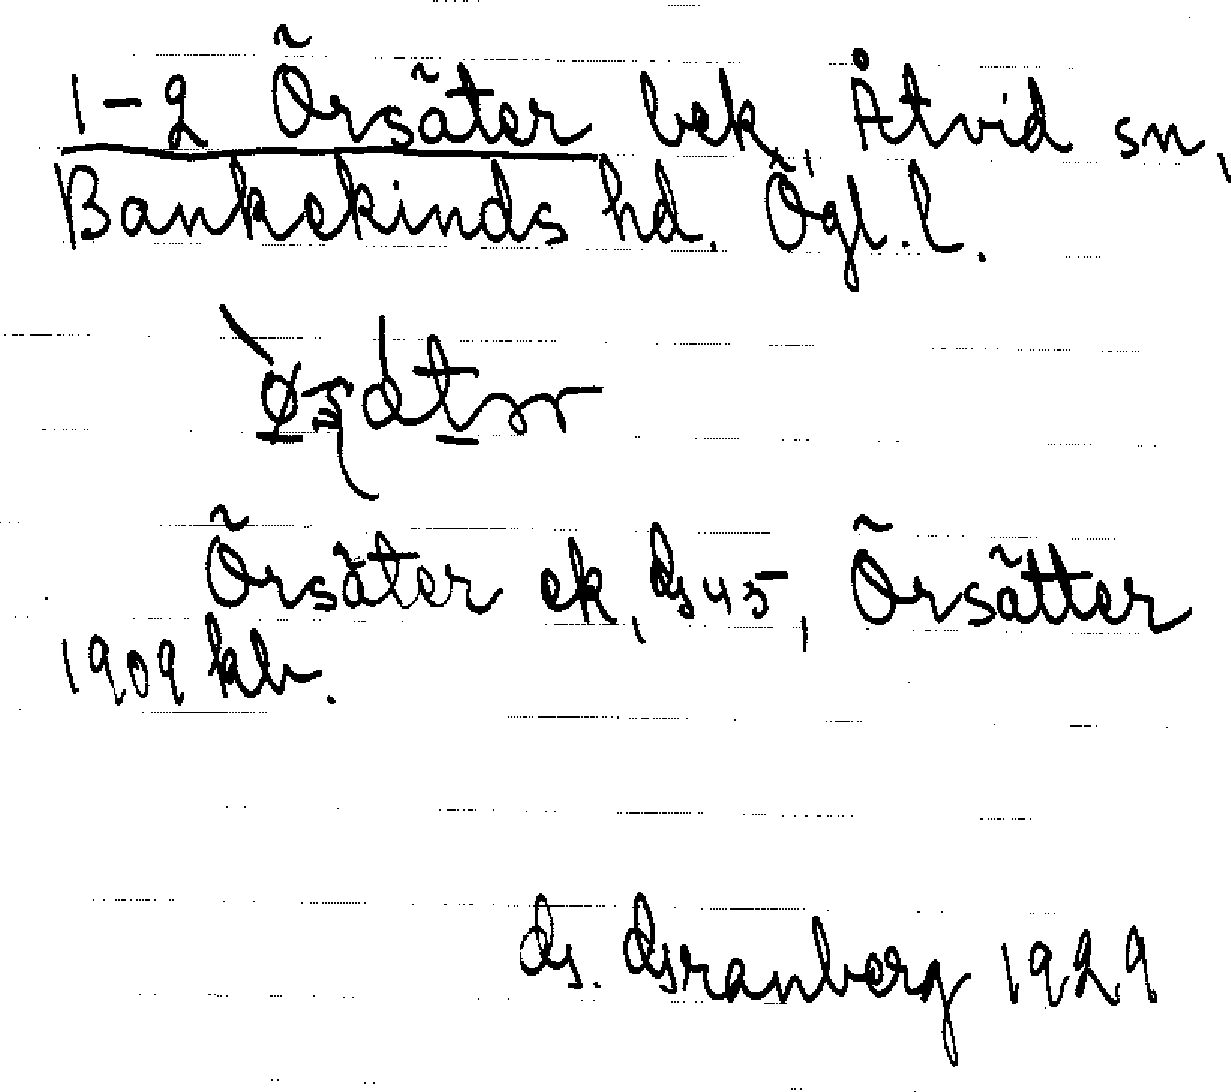 1-2 Örsäter bek, Åtvid sn,
Bankekinds hd. Ögl. l.
Örsäter ek, G 45, Örsätter
1909 kb.
G. Granberg 1929